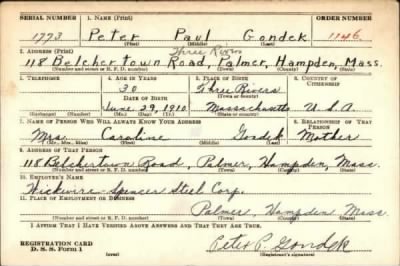 SERIAL NUMBER 1. NAME (Print) ORDER NUMBER
1773 Peter Paul Gondek 1146
(First) (Middle) (Last)
2. ADDRESS (Print) Three Rivers
118 Belchertown Road, Palmer, Hampden, Mass.
(Number and street or R. F. D. number) (Town) (County) (State)
3. TELEPHONE 4. AGE IN YEARS 5. PLACE OF BIRTH 6. COUNTRY OF CITIZENSHIP
30 Three Rivers
DATE OF BIRTH (Town or county)
June 29, 1910 Massachusetts U.S.A.
(Exchange) (Number) (Mo.) (Day) (Yr.) (State or country)
7. NAME OF PERSON WHO WILL ALWAYS KNOW YOUR ADDRESS 8. RELATIONSHIP OF THAT PERSON
Mrs. Caroline Gondek Mother
(Mr., Mrs., Miss) (First) (Middle) (Last)
9. ADDRESS OF THAT PERSON
118 Belchertown Road, Palmer, Hampden, Mass.
(Number and street or R. F. D. number) (Town) (County) (State)
10. EMPLOYER'S NAME
Wickwire Spencer Steel Corp.
11. PLACE OF EMPLOYMENT OR BUSINESS
Palmer, Hampden Mass.
(Number and street or R. F. D. number) (Town) (County) (State)
I AFFIRM THAT I HAVE VERIFIED ABOVE ANSWERS AND THAT THEY ARE TRUE.
REGISTRATION CARD
D. S. S. Form 1 (over) Peter P. Gondek
(Registrant's signature)